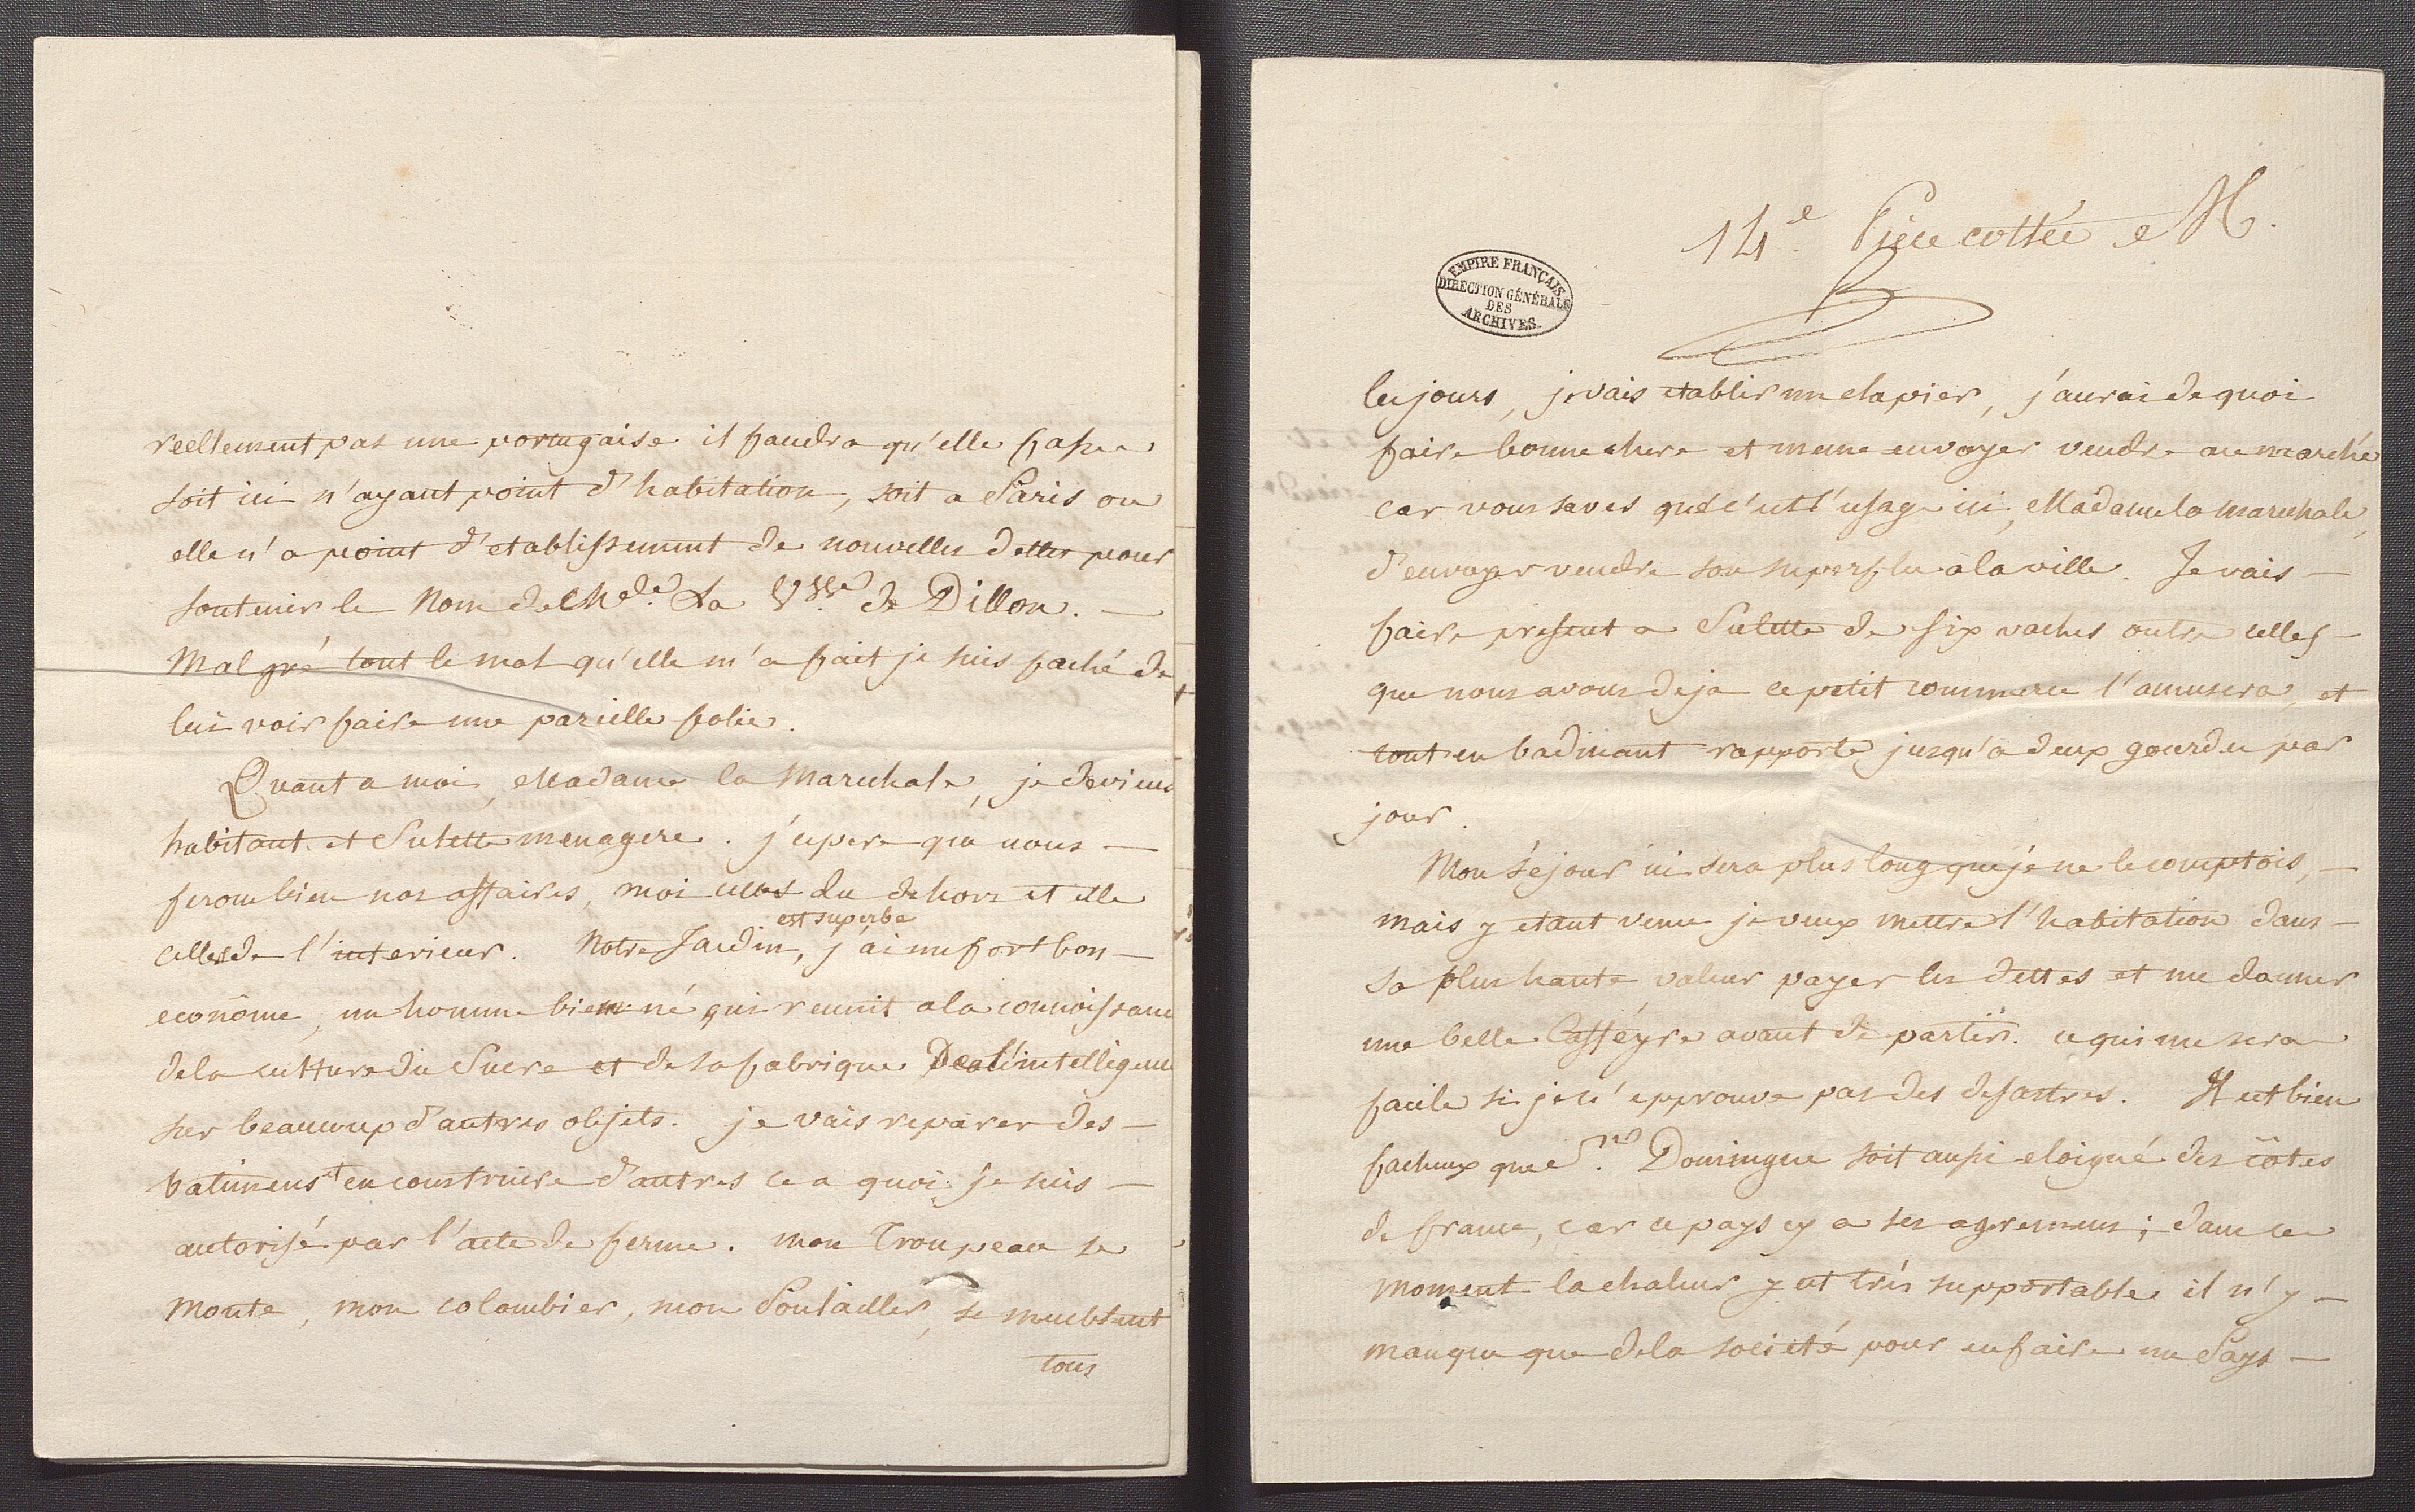 reellement pas une portugaise il faudra qu'elle fasse
soit ici n'ayant point d'habitation, soit a Paris ou
elle n'a point d'etablissement de nouvelles dettes pour
soutenir le Nom de Mde. La Vsse. de Dillon. —
Malgré tout le mal qu'elle m'a fait je suis faché de
lui voir faire une parielle folie.
Quant a moi, Madame la Marechale, je deviens
habitant et Sulette menagere. j'espere que nous —
ferons bien nos affaires, moi celles du dehors et elle
est superbe
celles de l'interieur. Notre Jardin, j'ai un fort bon —
econôme, un homme bien né qui reunit a la connoissance
de la culture du Sucre et de sa fabrique De l'intelligence
sur beaucoup d'autres objets. je vais reparer des —
batimens et en construire d'autres ce a quoi je suis —
autorisé par l'acte de ferme. mon Troupeau se
monte, mon colombier, mon Poulailler, se meublent
tous
14e. Piece cottée M.
EMPIRE FRANÇAIS
DIRECTION GÉNÉRALE
DES
ARCHIVES.
les jours, je vais etablir un clapier, j'aurai de quoi
faire bonne chere et meme envoyer vendre au marché
car vous saves que c'est l'usage ici, Madame la marechale,
d'envoyer vendre son superflu a la ville. Je vais —
faire present a Sulette de six vaches outre celles —
que nous avons deja ce petit commerce l'amusera, et
tout en badinant rapporte jusqu'a deux gourdes par
jour.
Mon séjour ici sera plus long que je ne le comptois, —
mais y etant venu je veux mettre l'habitation dans —
sa plus haute valeur payer les dettes et me donner
une belle Cafféyre avant de partir. ce qui me sera
facile si je n'epprouve pas des desastres. Il est bien
facheux que St. Domingue soit aussi eloigné des côtes
de france, car ce pays cy a ses agremens; dans ce
moment la chaleur y est très supportable il n'y —
manque que de la societé pour en faire un Pays —